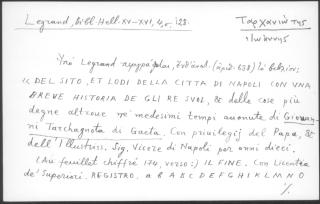 Legrand, Bibl. Hell. XV-XVI, 4, σ. 128.
Ταρχανιώτης
Ἰωάννης
Ὑπὸ Legrand περιγράφεται, (ἀριθ. 638) τὸ βιβλίον:
« DEL SITO, ET LODI DELLA CITTA DI NAPOLI CON VNA
BREVE HISTORIA DE GLI RE SVOI, & delle cose più
degne altroue ne' medesimi tempi auenute di Giouan-
ni Tarchagnota di Gaeta. Con priuilegij del Papa, &
dell' Illustriss. Sig. Vicere di Napoli per anni dieci.
(Au feuillet chiffré 174, verso:) IL FINE. Con Licentia
de' Superiori. REGISTRO. a b A B C D E F G H I K L M N O